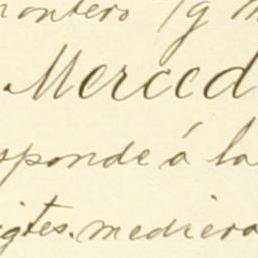 montero y
Merced
sponde á la
igtes. mediera